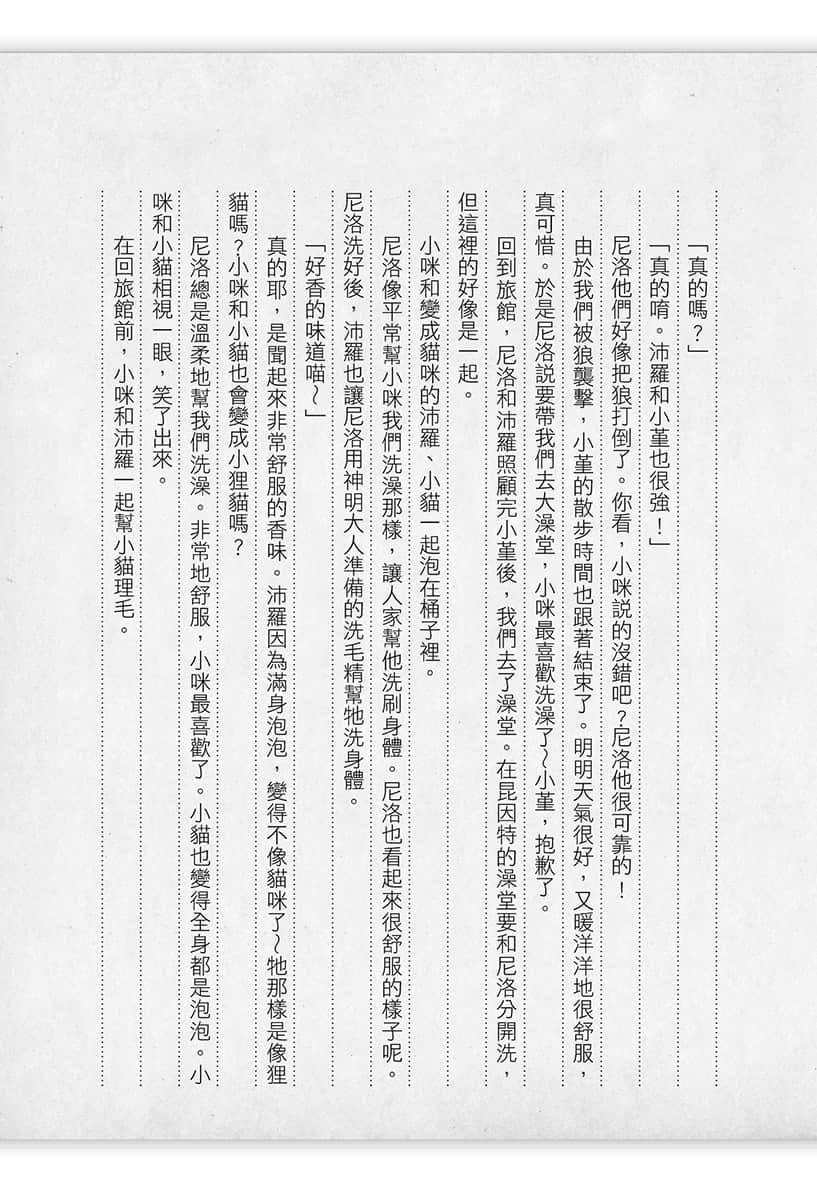 「真的嗎？」
「真的唷。沛羅和小堇也很強！」
尼洛他們好像把狼打倒了。你看，小咪說的沒錯吧？尼洛他很可靠的！
由於我們被狼襲擊，小堇的散步時間也跟著結束了。明明天氣很好，又暖洋洋地很舒服，
真可惜。於是尼洛說要帶我們去大澡堂，小咪最喜歡洗澡了～小堇，抱歉了。
回到旅館，尼洛和沛羅照顧完小堇後，我們去了澡堂。在昆因特的澡堂要和尼洛分開洗，
但這裡的好像是一起。
小咪和變成貓咪的沛羅、小貓一起泡在桶子裡。
尼洛像平常幫小咪我們洗澡那樣，讓人家幫他洗刷身體。尼洛也看起來很舒服的樣子呢。
尼洛洗好後，沛羅也讓尼洛用神明大人準備的洗毛精幫牠洗身體。
「好香的味道喵～」
真的耶，是聞起來非常舒服的香味。沛羅因為滿身泡泡，變得不像貓咪了～牠那樣是像狸
貓嗎？小咪和小貓也會變成小狸貓嗎？
尼洛總是溫柔地幫我們洗澡。非常地舒服，小咪最喜歡了。小貓也變得全身都是泡泡。小
咪和小貓相視一眼，笑了出來。
在回旅館前，小咪和沛羅一起幫小貓理毛。